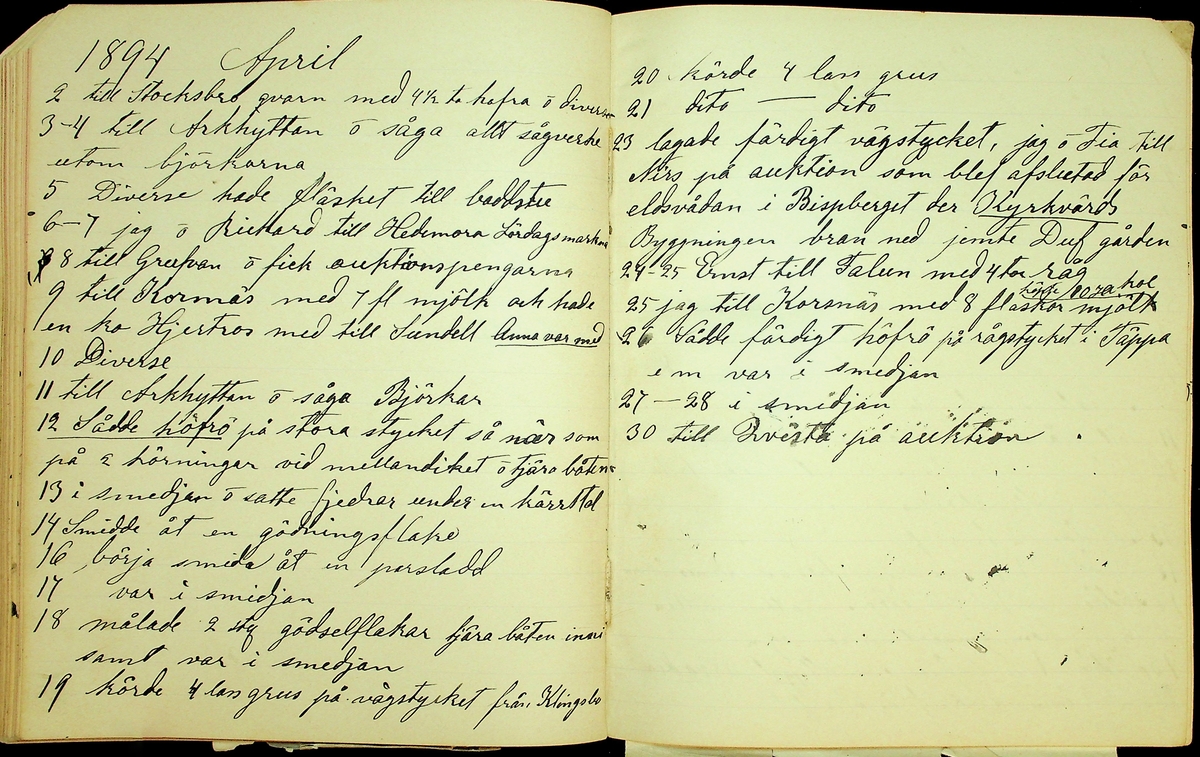 1894 April
2 till Stocksbro qvarn med 4½ ta hafra ō diverse
3-4 till Arkhyttan ō såga allt sågverke
utom björkarna
5 Diverse hade fläsket till badstu
6-7 jag ō Rickard till Hedemora Lördagsmarkna
8 till Grufvan ō fick auktionspengarna
9 till Kornäs med 7 fl mjölk och hade
en ko Hjertros med till Sundell Anna var med
10 Diverse
11 till Arkhyttan ō såga Björkar
12 Sådde höfrö på stora stycket så när som
på 2 körningar vid mellandiket ō tjära båten
13 i smedjan ō satte fjedrar under en kärrstol
14 Smidde åt en gödningsflake
16 börja smida åt en parsladd
17 var i smidjan
18 målade 2 sty gödselflakar tjära båten inuti
samt var i smedjan
19 körde 4 lass grus på vägstycket från Klingsbo
20 körde 4 lass grus
21 dito — dito
23 lagade färdigt vägstycket, jag ō Fia till
Nirs på auktion som blef afslutad för
eldsvådan i Bispberget der Kyrkvärds
Byggningen bran ned jemte Duf gården
24-25 Ernst till Falun med 4 tor råg
köpte 10 za kol
25 jag till Korsnäs med 8 flaskor mjölk
26 Sådde färdigt höfrö på rågstycket i Täppa
e m var i smedjan
27-28 i smidjan
30 till på auktion